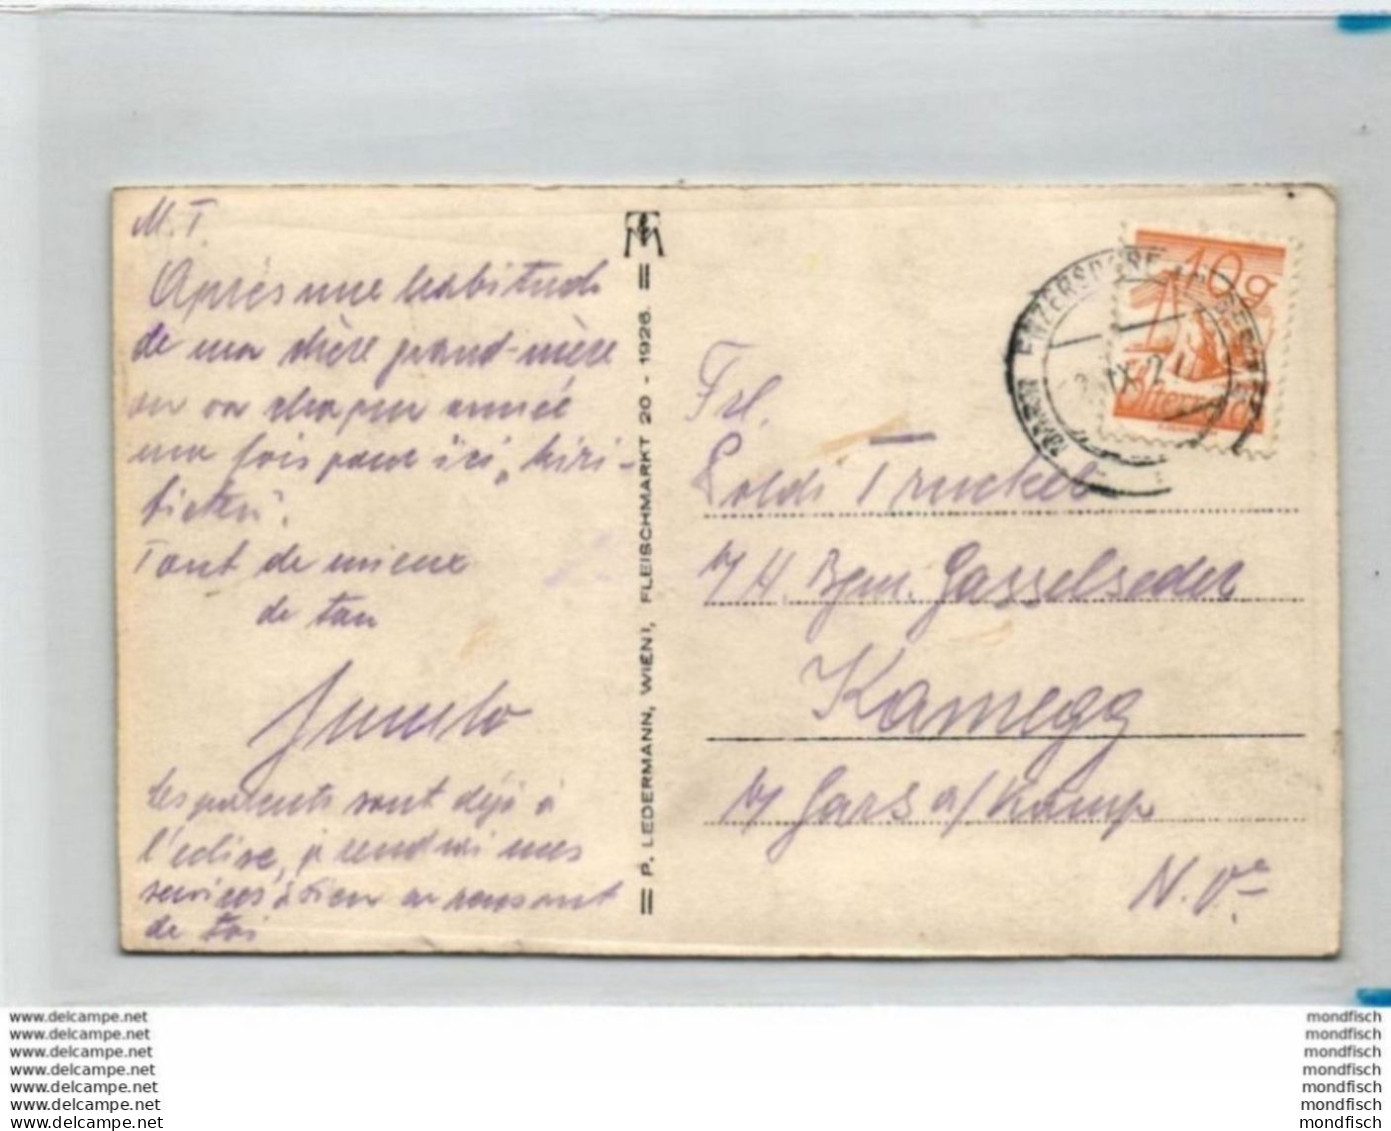 M.T.
Après une habitude
de ma chère grand-mère
on va chaque année
une fois pour ici, "Kiri-
Tant de mieux
de tan
Les parents sont déjà à
l'eclise, je rendrai mes
services à Dieu en pensant
de toi
P. LEDERMANN, WIEN I, FLEISCHMARKT 20 - 1926.
10g
Österreich
ENZERSDORF
IX 2
Frl.
Poldi Truckel
b/ H. Bgm. Gasselseder
Kamegg
b/ Gars a/ Kamp
N.Öe.
www.delcampe.net
www.delcampe.net
www.delcampe.net
www.delcampe.net
www.delcampe.net
www.delcampe.net
www.delcampe.net
mondfisch
mondfisch
mondfisch
mondfisch
mondfisch
mondfisch
mondfisch